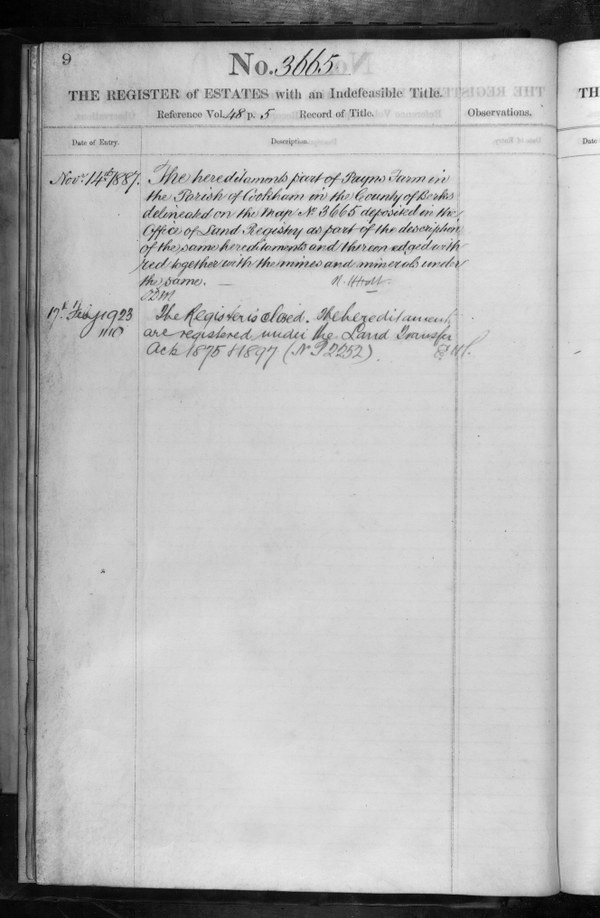 9
No. 3665
THE REGISTER of ESTATES with an Indefeasible Title.
Reference Vol. 48 p. 5 Record of Title.
Observations.
Date of Entry.
Description.
Novr. 14th 1887.
The hereditaments part of Payns Farm in
the Parish of Cookham in the County of Berks
delineated on the Map No. 3665 deposited in the
Office of Land Registry as part of the description
of the same hereditaments and thereon edged with
red together with the mines and minerals under
the same. —
17th Feby 1923
The Register is closed. The hereditaments
are registered under the Land Transfer
Acts 1875 & 1897 (No. P 2252)
TH
Date